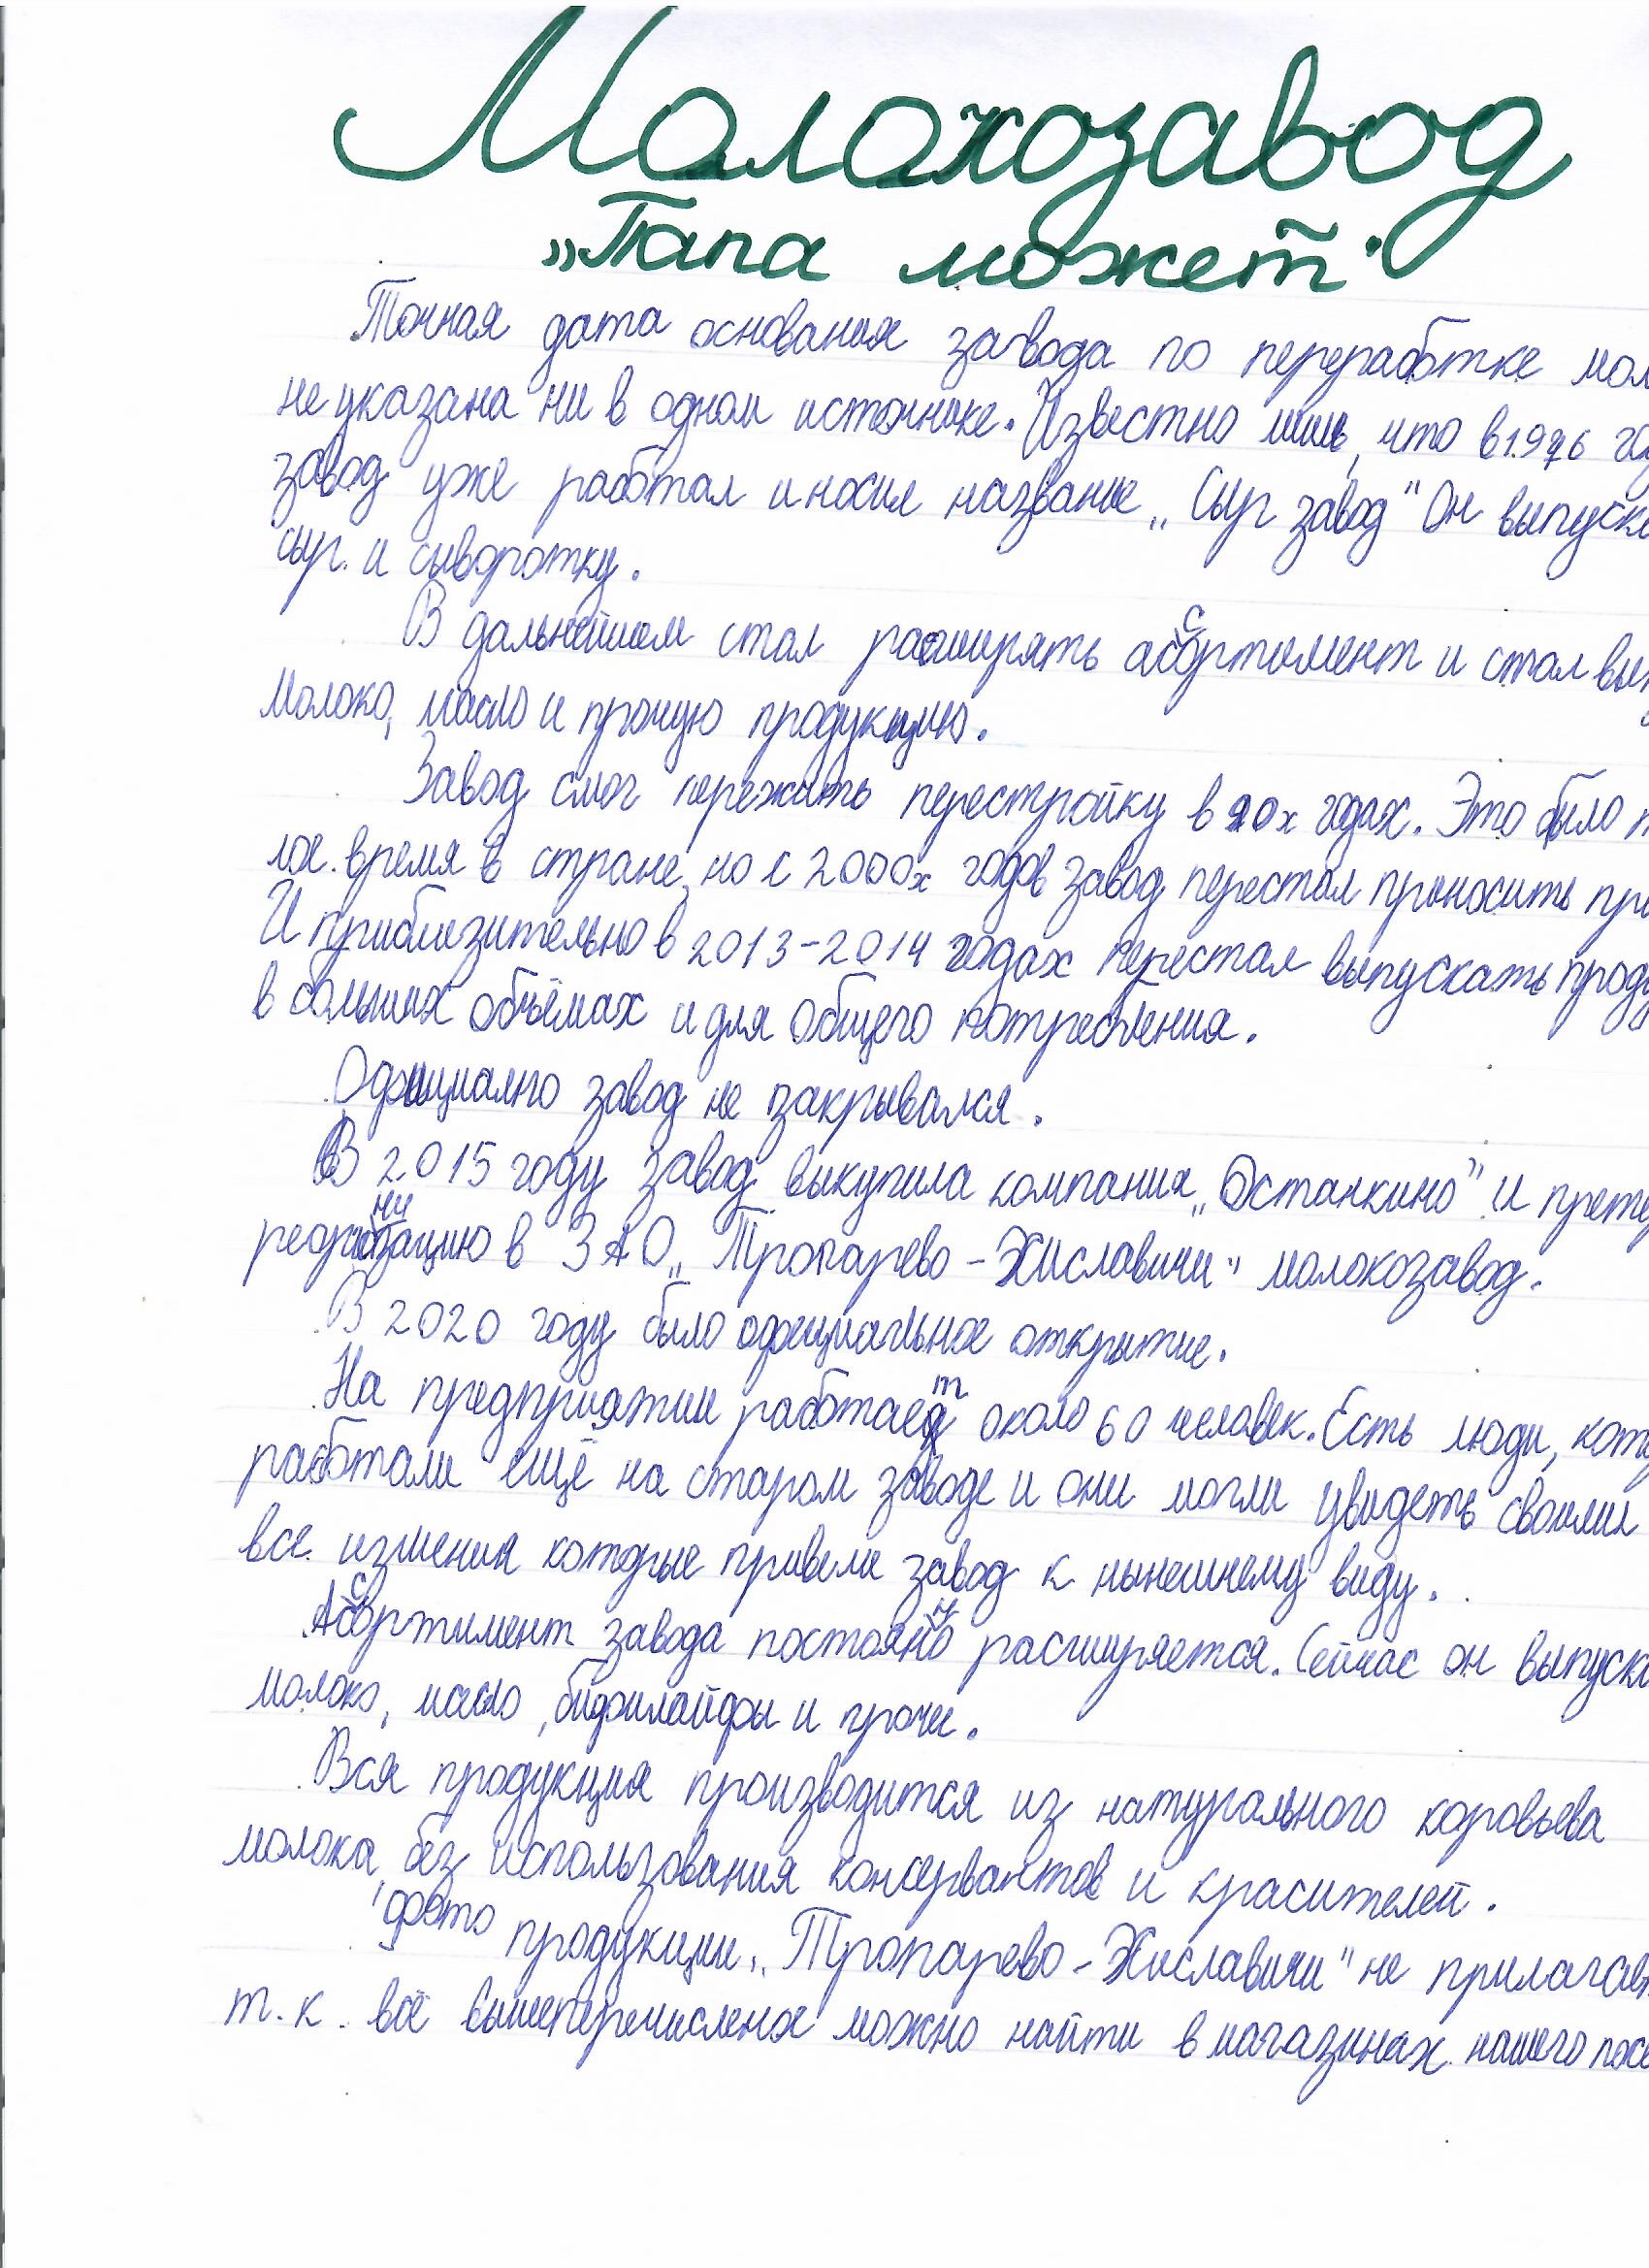 Молокозавод
„Папа может"
Точная дата основания завода по переработке мол
не указана ни в одном источнике. Известно лишь, что в 1976 год
завод уже работал и носил название „Сыр завод" Он выпуска
сыр и сыворотку.
В дальнейшем стал расширять ассортимент и стал вып
молоко, масло и прочую продукцию.
Завод смог пережить перестройку в 90х годах. Это было т
лое время в стране, но с 2000х годов завод перестал приносить при
И приблизительно в 2013-2014 годах перестал выпускать проду
в больших объёмах и для общего потребления.
Официално завод не закрывался.
В 2015 году завод выкупила компания „Останкино" и прете
реорганизацию в ЗАО „Тропарево-Хиславичи" молокозавод.
В 2020 году было официальное открытие.
На предприятии работает около 60 человек. Есть люди, кото
работали ещё на старом заводе и они могли увидеть своими
все измения которые привели завод к нынешнему виду.
Ассортимент завода постоянно расширяется. Сейчас он выпуска
молоко, масло, бифилайфы и прочее.
Вся продукция производится из натурального коровьева
молока, без использования консервантов и красителей.
фото продукции „Тропарево-Хиславичи" не прилагает
т.к. всё вышеперечисленое можно найти в магазинах нашего посё